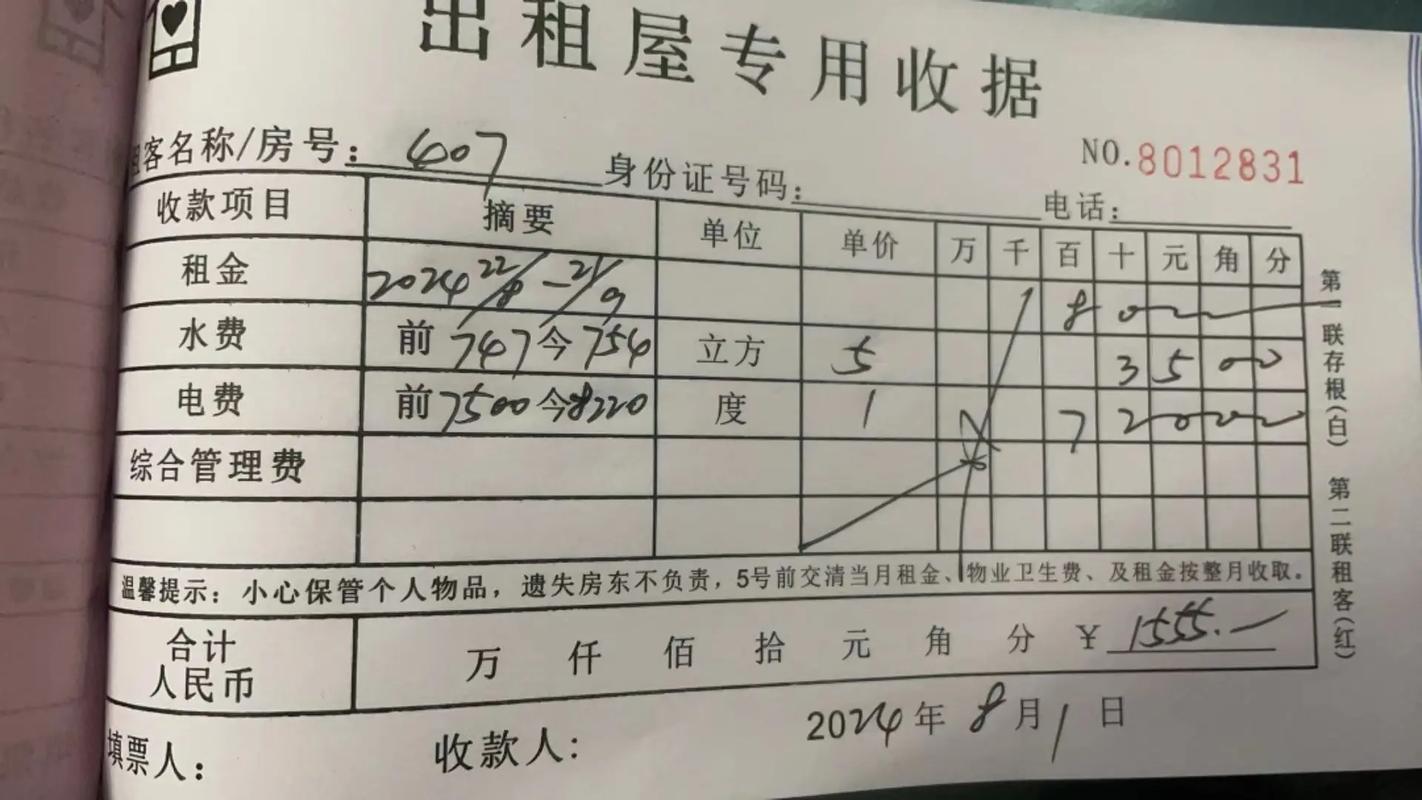 出租屋专用收据
NO.8012831
租客名称/房号：607 身份证号码： 电话：
收款项目 摘要 单位 单价 万 千 百 十 元 角 分
租金 2024 22/8-21/9 8 0 0
水费 前 747 今 754 立方 5 3 5 0 0
电费 前 7500 今 8220 度 1 7 2 0 0 0
综合管理费
温馨提示：小心保管个人物品，遗失房东不负责，5号前交清当月租金、物业卫生费、及租金按整月收取。
合计
人民币 万 仟 佰 拾 元 角 分 ¥ 1555.—
填票人： 收款人： 2024年 8月 1日
第一联存根(白) 第二联租客(红)